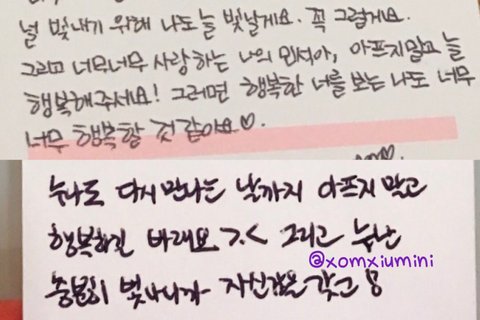 널 빛내기 위해 나도 늘 빛날게요. 꼭 그럴게요.
그리고 너무너무 사랑하는 나의 민석아, 아프지말고 늘
행복해주세요! 그러면 행복한 너를 보는 나도 너무
너무 행복할 것 같아요♡.
누나도 다시 만나는 날까지 아프지 말고
행복하길 바래요 >.< 그리고 누난
@xomxiumini
충분히 빛나니까 자신감을 갖고 !